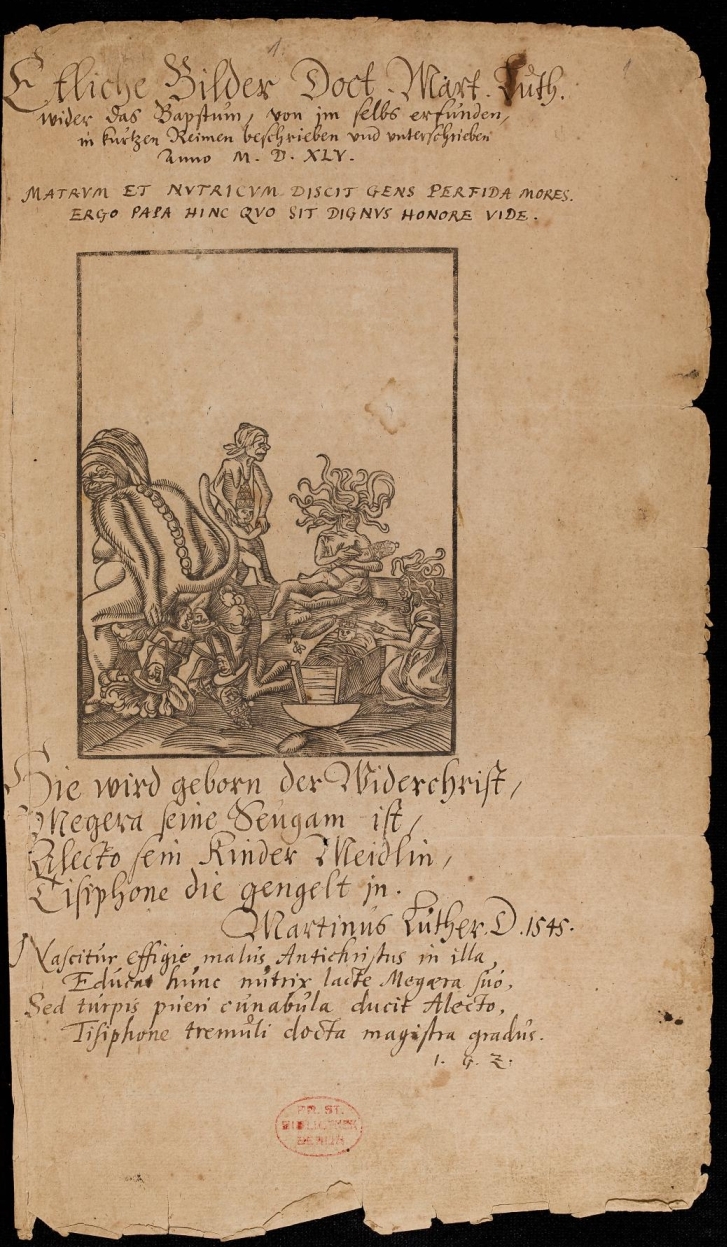 1.
Etliche Bilder Doct. Mart. Luth.
wider das Bapstum, von im selbs erfunden,
in kurtzen Reimen beschrieben vnd vnterschrieben
Anno M. D. XLV.
MATRVM ET NVTRICVM DISCIT GENS PERFIDA MORES.
ERGO PAPA HINC QVO SIT DIGNVS HONORE VIDE.
Hie wird geborn der Widerchrist/
Megera seine Seugam ist/
Alecto sein Kinder Meidlin/
Tisiphone die gengelt jn.
Martinus Luther. D. 1545.
Nascitur effigie malus Antichristus in illa,
Educat hunc nutrix lacte Megæra suo,
Sed turpis pueri cunabula ducit Alecto,
Tisiphone tremuli docta magistra gradus.
I. G. Z.
PR. ST.
BIBLIOTHEK
BERLIN